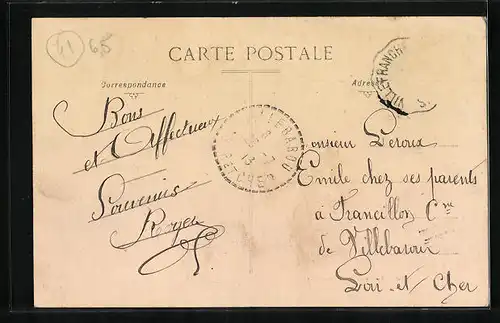 41 65
CARTE POSTALE
Correspondance
Adresse
VILLEFRANCH
Bons
et Affectueux
Souvenirs
Royer
VILLEBAROU
LOIR ET CHER
Monsieur Leroux
Emile chez ses parents
à Francillon Cne
de Villebarou
Loir-et-Cher